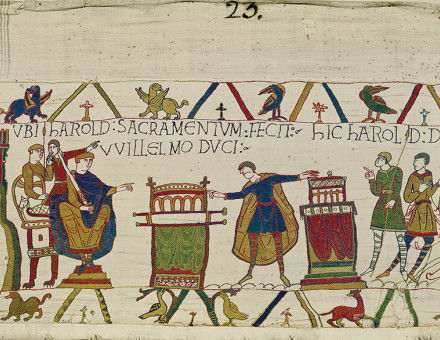 23.
UBI hAROLD : SACRAMENTUM : FECIT :
VVILLELMO DUCI :
hIC hAROLD : D